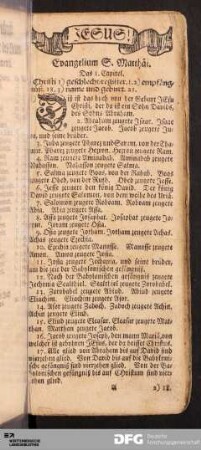 JESUS!
Evangelium S. Matthäi.
Das 1. Capitel.
Christi 1) geschlecht-register, 1. 2) empfäng-
niß, 18. 3) name und geburt. 21.
Diß ist das buch von der Geburt JEsu
Christi, der da ist ein Sohn Davids,
des Sohns Abraham.
2. Abraham zeugete Isaac. Isaac
zeugete Jacob. Jacob zeugete Ju-
da, und seine brüder.
3. Juda zeugete Pharez und Saram, von der Tha-
mar. Pharez zeugete Hezron. Hezron zeugete Ram.
4. Ram zeugete Aminadab. Aminadab zeugete
Nahasson. Nahasson zeugete Salma.
5. Salma zeugete Boas, von der Rahab. Boas
zeugete Obed, von der Ruth. Obed zeugete Jesse.
6. Jesse zeugete den könig David. Der könig
David zeugete Salomon, von dem weibe des Uriä.
7. Salomon zeugete Roboam. Roboam zeugete
Abia. Abia zeugete Assa.
8. Assa zeugete Josaphat. Josaphat zeugete Jo-
ram. Joram zeugete Osia.
9. Osia zeugete Jotham. Jotham zeugete Achas.
Achas zeugete Ezechia.
10. Ezechia zeugete Manasse. Manasse zeugete
Amon. Amon zeugete Josia.
11. Josia zeugete Jechonia, und seine brüder,
um die zeit der Babylonischen gefängniß.
12. Nach der Babylonischen gefängniß zeugete
Jechonia Sealthiel. Sealthiel zeugete Zorobabel.
13. Zorobabel zeugete Abiud. Abiud zeugete
Eliachim. Eliachim zeugete Asor.
14. Asor zeugete Zadoch. Zadoch zeugete Achin.
Achin zeugete Eliud.
15. Eliud zeugete Eleasar. Eleasar zeugete Mat-
than. Matthan zeugete Jacob.
16. Jacob zeugete Joseph, den mann Mariä, von
welcher ist geboren JEsus, der da heisset Christus.
17. Alle glied von Abraham bis auf David sind
vierzehen glied. Von David bis auf die Babyloni-
sche gefängniß sind vierzehen glied. Von der Ba-
bylonischen gefängniß bis auf Christum sind vier-
zehen glied.
A
2) 18.
DFG Deutsche
Forschungsgemeinschaft